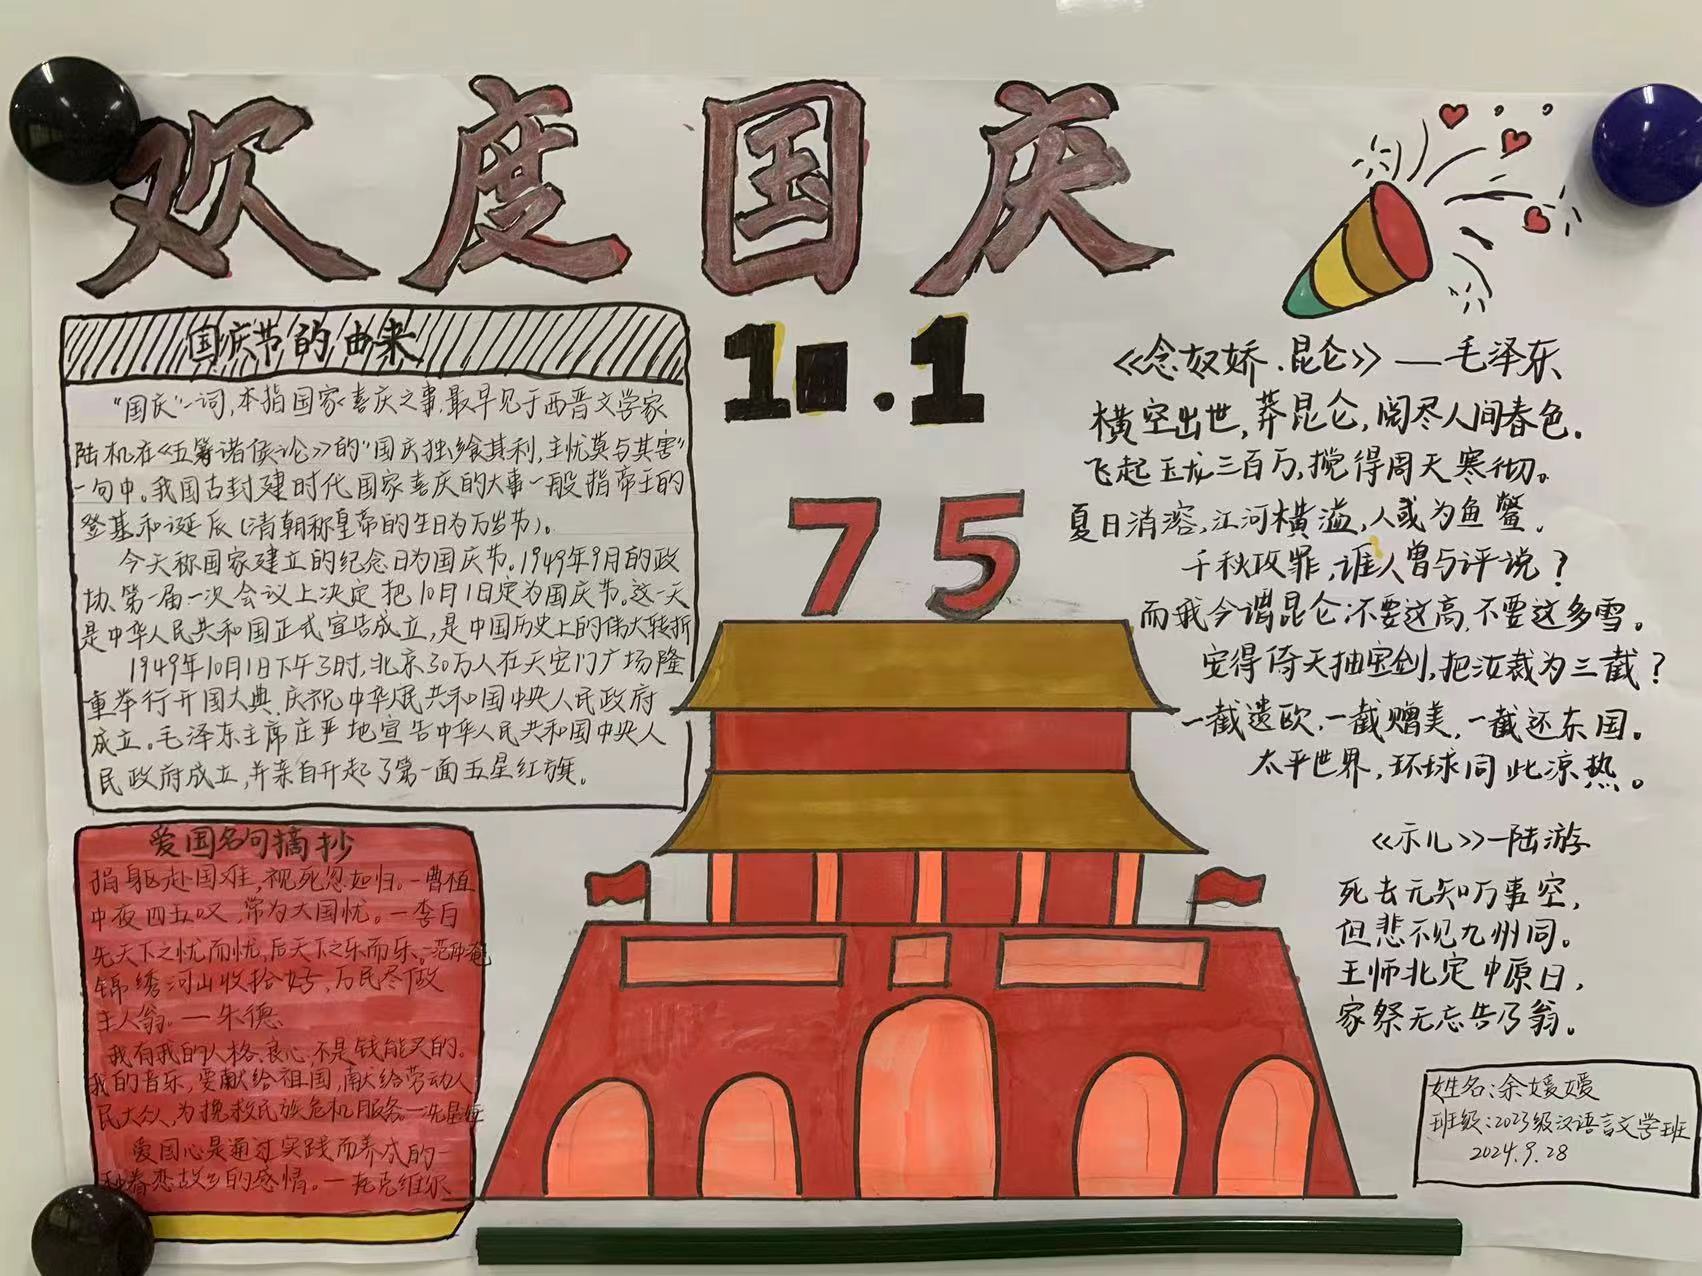 欢度国庆
10.1
75
国庆节的由来
“国庆”一词,本指国家喜庆之事,最早见于西晋文学家
陆机在《五等诸侯论》的“国庆独飨其利,主忧莫与其害”
一句中。我国古封建时代国家喜庆的大事一般指帝王的
登基和诞辰(清朝称皇帝的生日为万岁节)。
今天称国家建立的纪念日为国庆节。1949年9月的政
协、第一届一次会议上决定把10月1日定为国庆节。这一天
是中华人民共和国正式宣告成立,是中国历史上的伟大转折
1949年10月1日下午3时,北京30万人在天安门广场隆
重举行开国大典,庆祝中华人民共和国中央人民政府
成立。毛泽东主席庄严地宣告中华人民共和国中央人
民政府成立,并亲自升起了第一面五星红旗。
爱国名句摘抄
捐躯赴国难,视死忽如归。—曹植
中夜四五叹,常为大国忧。—李白
先天下之忧而忧,后天下之乐而乐。—范仲淹
锦绣河山收拾好,万民尽做
主人翁。——朱德
我有我的人格、良心,不是钱能买的。
我的音乐,要献给祖国,献给劳动人
民大众,为挽救民族危机服务。—冼星海
爱国心是通过实践而养成的一
种眷恋故乡的感情。—托克维尔
《念奴娇·昆仑》——毛泽东
横空出世,莽昆仑,阅尽人间春色.
飞起玉龙三百万,搅得周天寒彻。
夏日消溶,江河横溢,人或为鱼鳖.
千秋功罪,谁人曾与评说?
而我今谓昆仑:不要这高,不要这多雪。
安得倚天抽宝剑,把汝裁为三截?
一截遗欧,一截赠美,一截还东国。
太平世界,环球同此凉热。
《示儿》—陆游
死去元知万事空,
但悲不见九州同。
王师北定中原日,
家祭无忘告乃翁。
姓名:余媛媛
班级:2023级汉语言文学班
2024.9.28